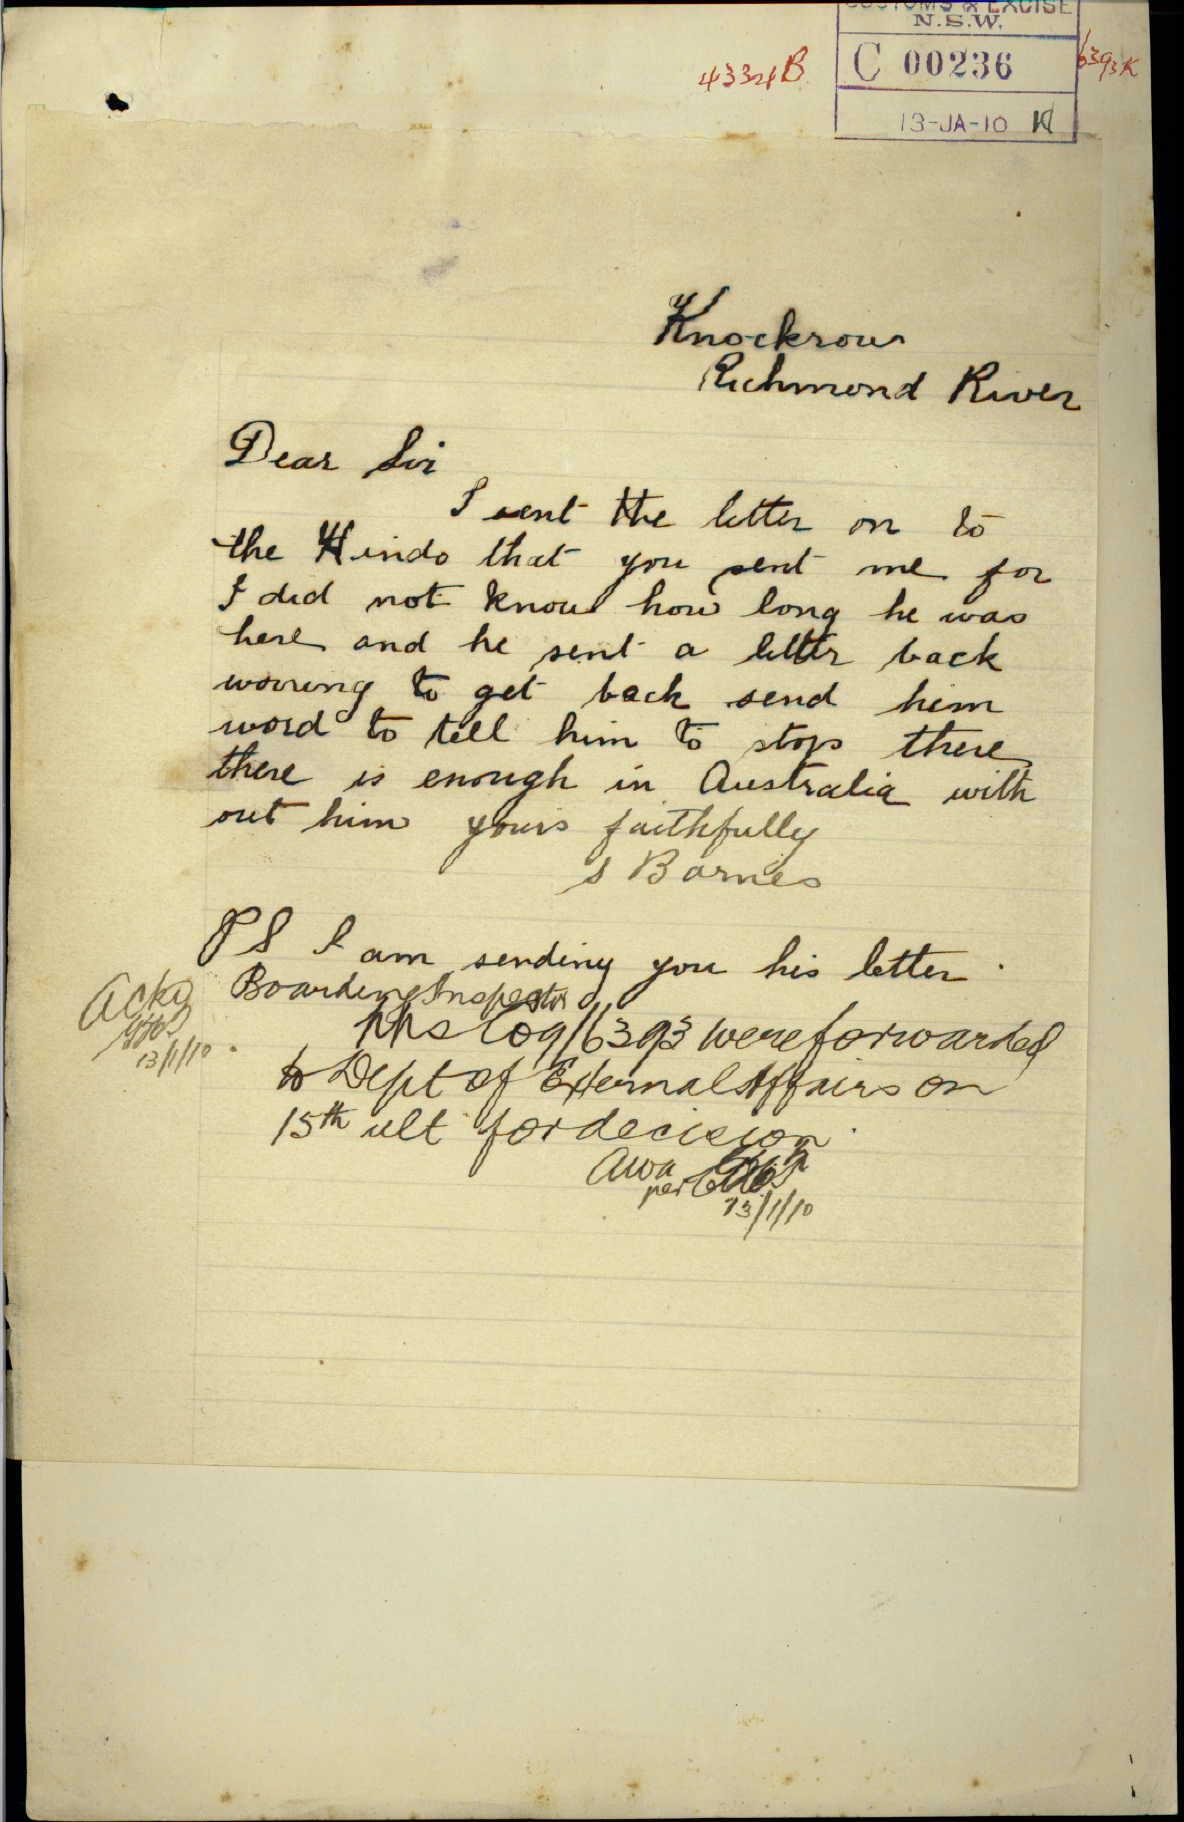 CUSTOMS & EXCISE
N.S.W.
C 00236
13-JA-10
4334B
6393K
Knockrow
Richmond River
Dear Sir
I sent the letter on to
the Hindo that you sent me for
I did not know how long he was
here and he sent a letter back
woring to get back send him
word to tell him to stop there
there is enough in Australia with
out him yours faithfully
S Barnes
PS I am sending you his letter
Boarding Inspector
Ackd
13/1/10
C09/6393 were forwarded
to Dept of External Affairs on
15th ult for decision.
per
13/1/10